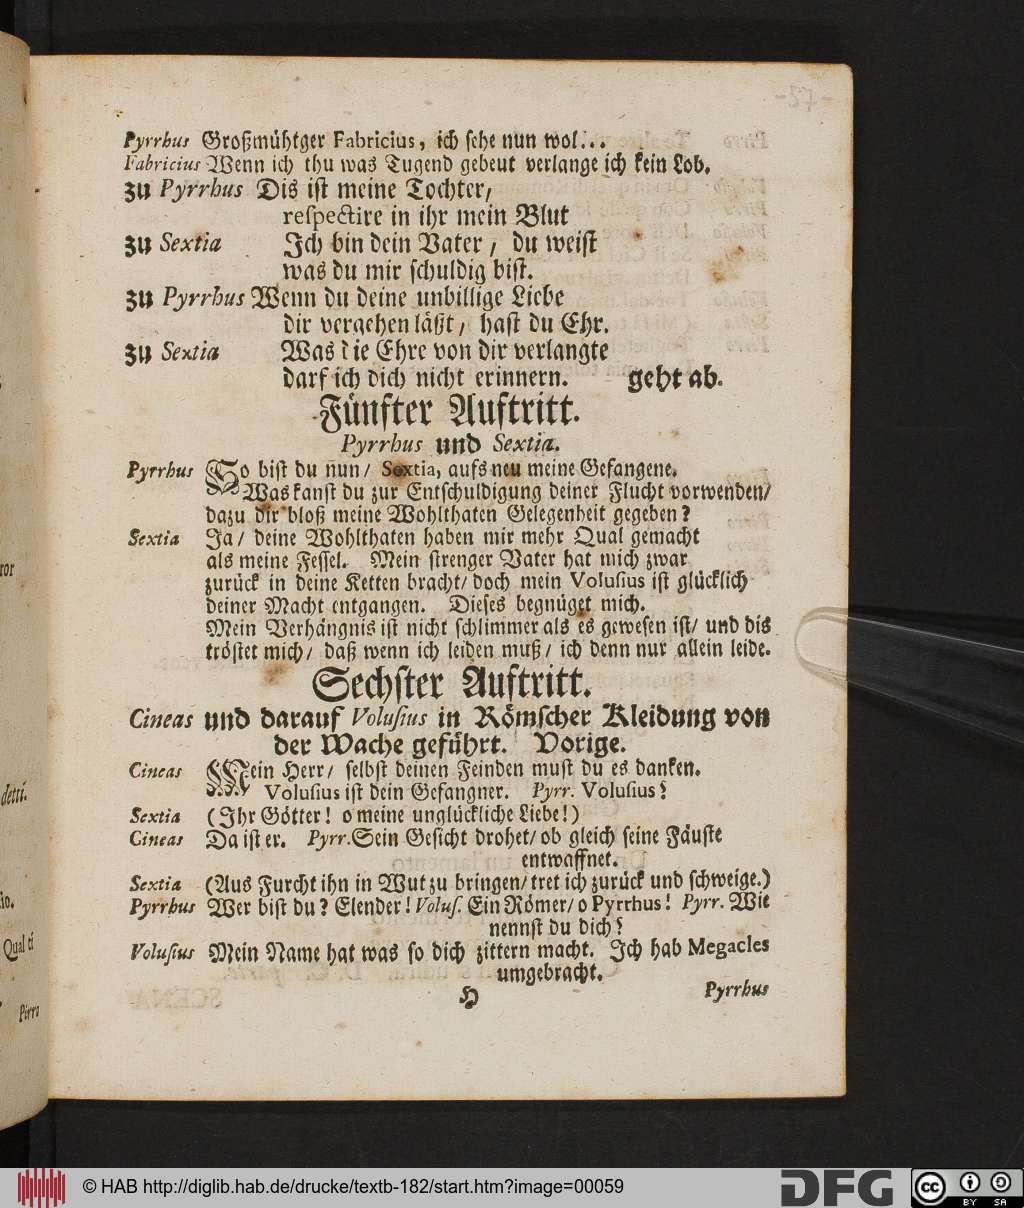 -57-
Pyrrhus Großmühtger Fabricius, ich sehe nun wol...
Fabricius Wenn ich thu was Tugend gebeut verlange ich kein Lob.
zu Pyrrhus Dis ist meine Tochter/
respectire in ihr mein Blut
zu Sextia Ich bin dein Vater / du weist
was du mir schuldig bist.
zu Pyrrhus Wenn du deine unbillige Liebe
dir vergehen läßt / hast du Ehr.
zu Sextia Was die Ehre von dir verlangte
darf ich dich nicht erinnern. geht ab.
Fünfter Auftritt.
Pyrrhus und Sextia.
Pyrrhus So bist du nun / Sextia, aufs neu meine Gefangene.
Was kanst du zur Entschuldigung deiner Flucht vorwenden/
dazu dir bloß meine Wohlthaten Gelegenheit gegeben?
Sextia Ja / deine Wohlthaten haben mir mehr Qual gemacht
als meine Fessel. Mein strenger Vater hat mich zwar
zurück in deine Ketten bracht / doch mein Volusius ist glücklich
deiner Macht entgangen. Dieses begnüget mich.
Mein Verhängnis ist nicht schlimmer als es gewesen ist / und dis
tröstet mich / daß wenn ich leiden muß / ich denn nur allein leide.
Sechster Auftritt.
Cineas und darauf Volusius in Römscher Kleidung von
der Wache geführt. Vorige.
Cineas Mein Herr / selbst deinen Feinden must du es danken.
Volusius ist dein Gefangner. Pyrr. Volusius?
Sextia (Ihr Götter! o meine unglückliche Liebe!)
Cineas Da ist er. Pyrr. Sein Gesicht drohet / ob gleich seine Fäuste
entwaffnet.
Sextia (Aus Furcht ihn in Wut zu bringen / tret ich zurück und schweige.)
Pyrrhus Wer bist du? Elender! Volus. Ein Römer / o Pyrrhus! Pyrr. Wie
nennst du dich?
Volusius Mein Name hat was so dich zittern macht. Ich hab Megacles
umgebracht.
H Pyrrhus
ror
detti.
io.
Qual ti
Pirro
© HAB http://diglib.hab.de/drucke/textb-182/start.htm?image=00059
DFG
cc BY SA